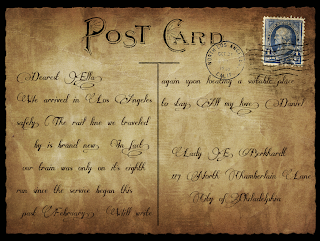 POST CARD
Dearest Ella
We arrived in Los Angeles
safely. The rail line we traveled
by is brand new. In fact
our train was only on its eighth
run since the service began this
past February. Will write
again upon locating a suitable place
to stay. All my love, Daniel
Lady E. Berkhardt
117 North Chamberlain Lane
City of Philadelphia